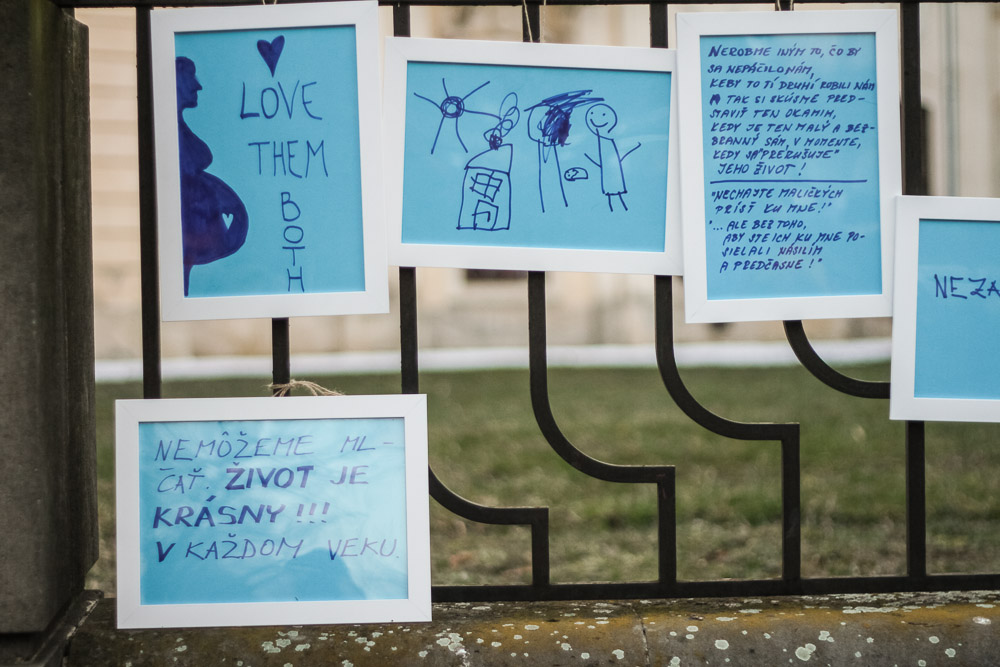 LOVE
THEM
BOTH
NEROBME INÝM TO, ČO BY
SA NEPÁČILO NÁM,
KEBY TO TÍ DRUHÍ ROBILI NÁM
A TAK SI SKÚSME PRED-
STAVIŤ TEN OKAMIH,
KEDY JE TEN MALÝ A BEZ-
BRANNÝ SÁM, V MOMENTE,
KEDY SA "PRERUŠUJE"
JEHO ŽIVOT!
"NECHAJTE MALIČKÝCH
PRÍSŤ KU MNE!"
"... ALE BEZ TOHO,
ABY STE ICH KU MNE PO-
SIELALI NÁSILÍM
A PREDČASNE!"
NEZA
NEMÔŽEME ML-
ČAŤ. ŽIVOT JE
KRÁSNY!!!
V KAŽDOM VEKU.